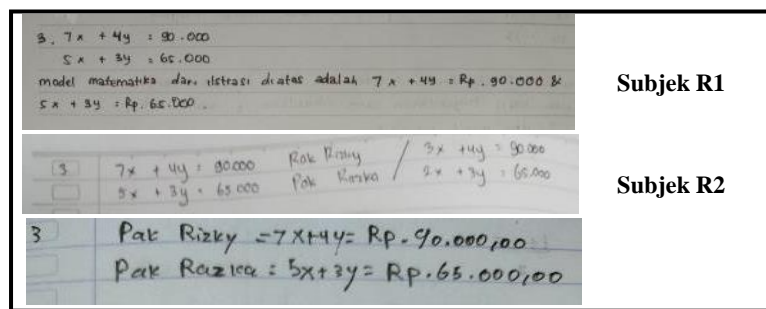 3. 7x + 4y = 90.000
5x + 3y = 65.000
model matematika dari ilstrasi diatas adalah 7x + 4y = Rp. 90.000 &
5x + 3y = Rp. 65.000.
Subjek R1
3 7x + 4y = 90000 Pak Rizky / 3x + 4y = 90000
5x + 3y = 65000 Pak Razka 2x + 3y = 65.000
Subjek R2
3 Pak Rizky = 7x+4y = Rp. 90.000,00
Pak Razka = 5x+3y = Rp. 65.000,00